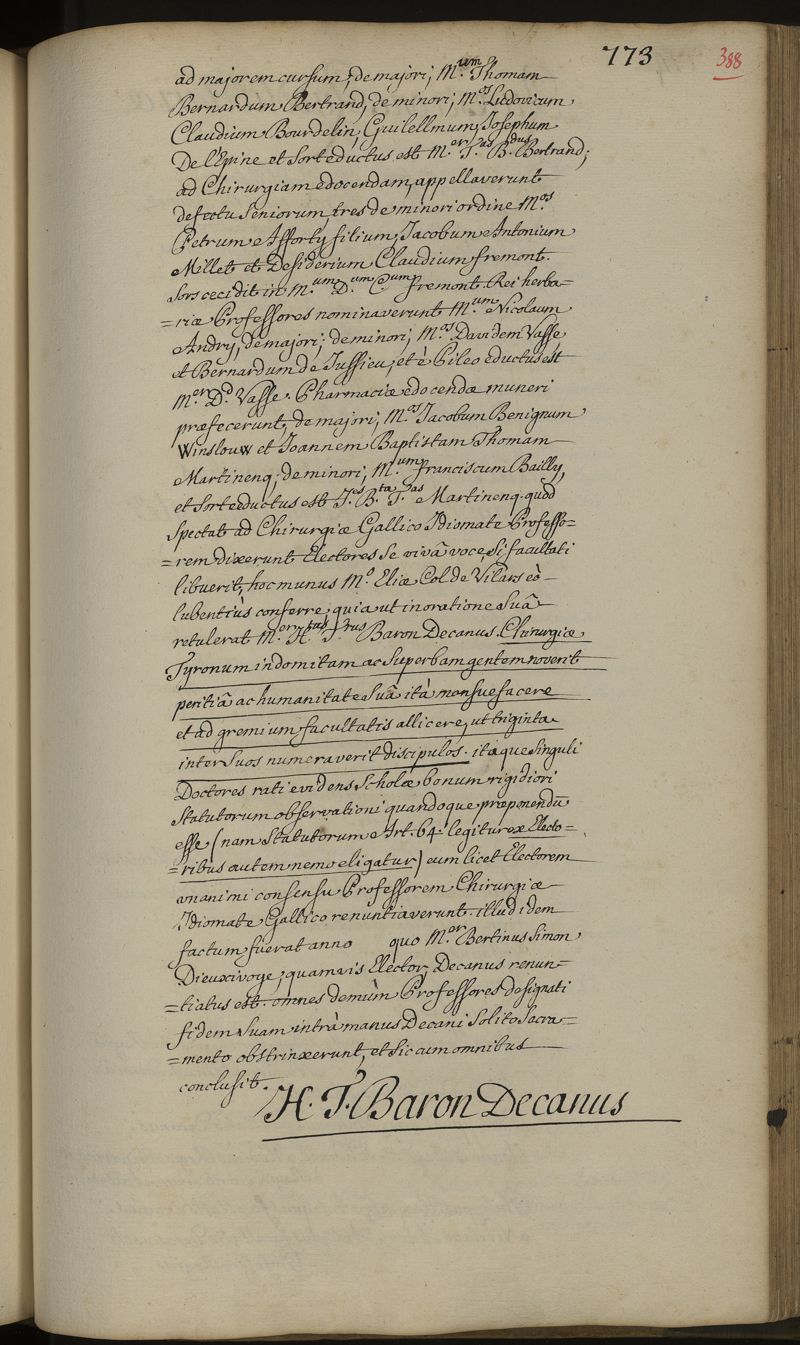 773 388
ad majorem cursum, de majori, M.um Thomam
Bernardum Bertrand, de minori, M.os Ludovicum
Claudium Bourdelin, Guilellmum, Josephum
De l'Epine et sorte ductus est M.er T.as B.dus Bertrand;
ad Chirurgiam edocendam, appellaverunt
defectu Seniorum, tres de minori ordine M.os
Petrum Afforty filium, Jacobum Antonium
Millet et Desiderium Claudium fremont.
Sors cecidit in M.um D.um C.um fremont. Rei herba=
=riæ Professores nominaverunt M.um Nicolaum
Andry, de majori; de minori, M.os Davidem Vasse
et Bernardum de Jussieu; et è Pileo eductus est
M.er D.d Vasse. Pharmaciæ edocendæ muneri
præfecerunt, de majori, M.os Jacobum Benignum
Winslouw et Joannem Baptistam Thomam
Martinenq; de minori, M.um franciscum Bailly,
et sorte eductus est J.es B.ta T.as Martinenq. quod
Spectat ad Chirurgiæ Gallico Idiomate Professo=
=rem dixerunt Electores se vivâ voce, si facultati
libuerit, hoc munus M.o Eliæ Col de Vilars eò
lubentiùs conferre, quia ut in oratione suâ
retulerat M.er H.us T.us Baron Decanus. Chirurgiæ
Tyronum indomitam ac Superbam gentem noverit
peritiâ ac humanitate Suâ ità mansuefacere
et ad gremium facultatis allicere, ut triginta
inter Suos numeraverit discipulos. itaque Singuli
Doctores rati evidens Scholæ bonum rigidiori
Statutorum observationi quandoque præponendū
esse (nam Statutorum Art. 64. legitur ex Electo=
=ribus autem nemo eligatur) eum licet Electorem
unanimi consensu Professorem Chirurgiæ
Idiomate Gallico renuntiaverunt. illud idem
factum fuerat anno quo M.er Bertinus Simon
Dieuxivoye, quamvis Elector, Decanus renun=
=tiatus est. omnes demùm Professores designati
fidem Suam intrà manus Decani Solito Sacra=
=mento obstrinxerunt, et Sic cum omnibus
conclusit.
H. T. Baron Decanus